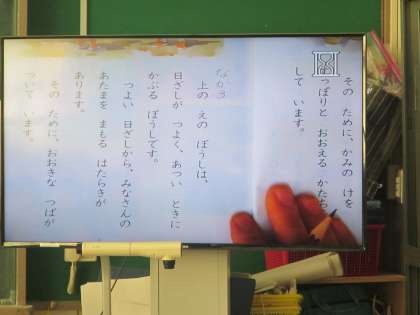 その ために、かみの けを
すっぽりと おおえる かたち
して います。
なか3
上の えの ぼうしは、
日ざしが つよく、あつい ときに
かぶる ぼうしです。
つよい 日ざしから、みなさんの
あたまを まもる はたらきが
あります。
その ために、おおきな つばが
ついて います。